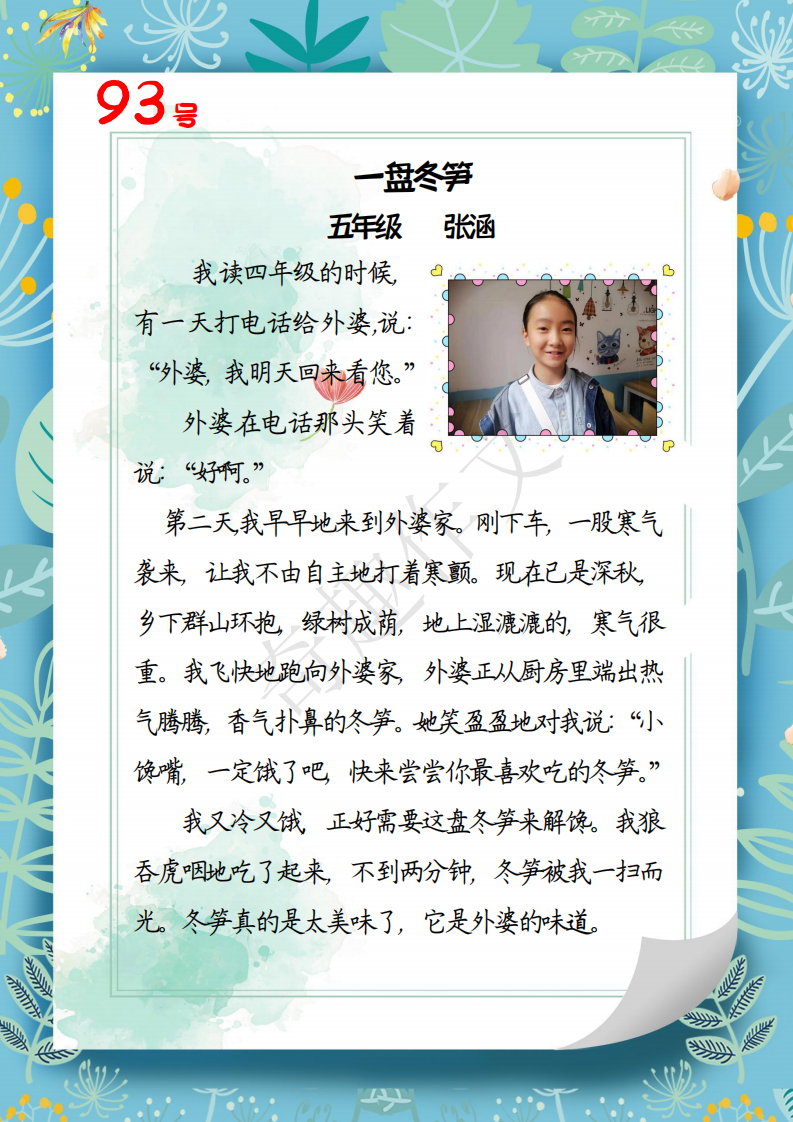 93号
一盘冬笋
五年级 张涵
我读四年级的时候,
有一天打电话给外婆,说:
“外婆, 我明天回来看您。”
外婆在电话那头笑着
说: “好啊。”
第二天,我早早地来到外婆家。刚下车, 一股寒气
袭来, 让我不由自主地打着寒颤。现在已是深秋,
乡下群山环抱, 绿树成荫, 地上湿漉漉的, 寒气很
重。我飞快地跑向外婆家, 外婆正从厨房里端出热
气腾腾, 香气扑鼻的冬笋。她笑盈盈地对我说: “小
馋嘴, 一定饿了吧, 快来尝尝你最喜欢吃的冬笋。”
我又冷又饿, 正好需要这盘冬笋来解馋。我狼
吞虎咽地吃了起来, 不到两分钟, 冬笋被我一扫而
光。冬笋真的是太美味了, 它是外婆的味道。
奇趣作文